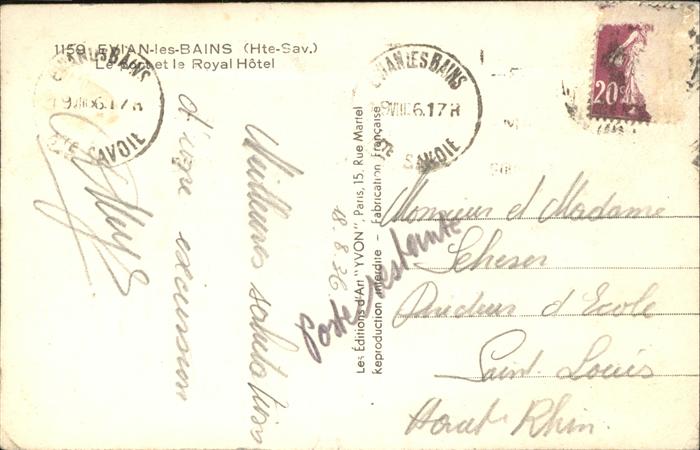 1159 EVIAN-les-BAINS (Hte-Sav.)
Le Port et le Royal Hôtel
EVIAN LES BAINS
19 VIII 36. 17 H
HTE SAVOIE
EVIAN LES BAINS
19 VIII 36. 17 H
HTE SAVOIE
20c
18.8.36
Meilleures salutations
d'une excursion
Les Editions d'Art "YVON", Paris, 15, Rue Martel
Reproduction interdite - Fabrication Française
Poste restante
Monsieur et Madame
Directeur d'Ecole
Saint Louis
Haut Rhin